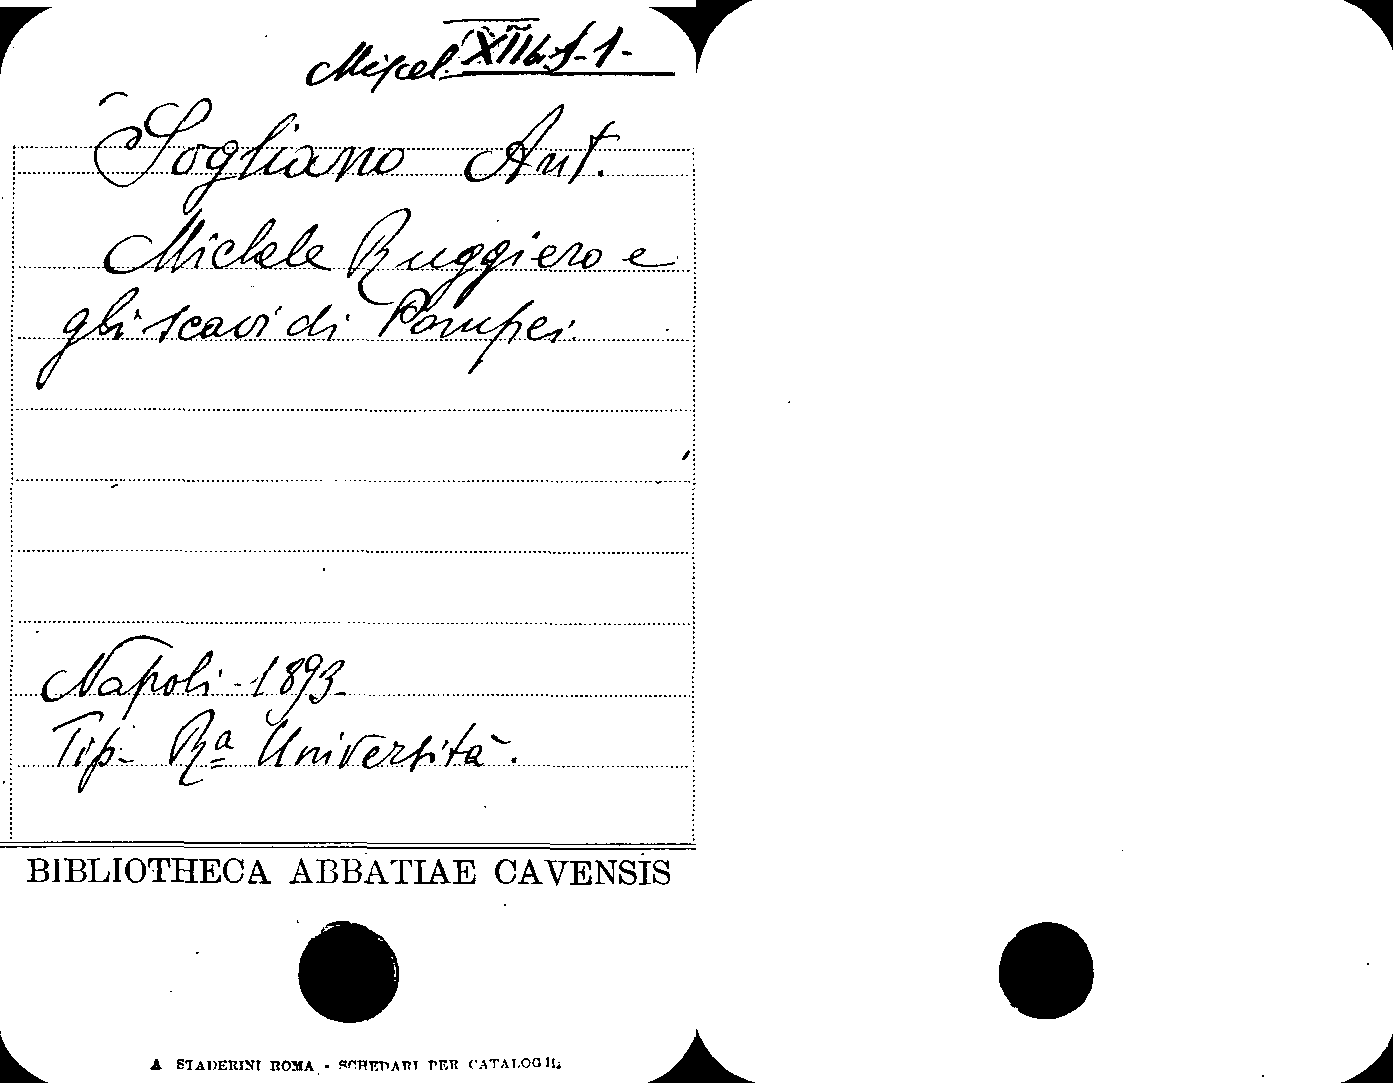 Miscel. XII b. 1-1-
Sogliano Ant.
Michele Ruggiero e
gli scavi di Pompei.
Napoli - 1893-
Tip- Rª Università.
BIBLIOTHECA ABBATIAE CAVENSIS
A STADERINI ROMA - SCHEDARI PER CATALOGHI